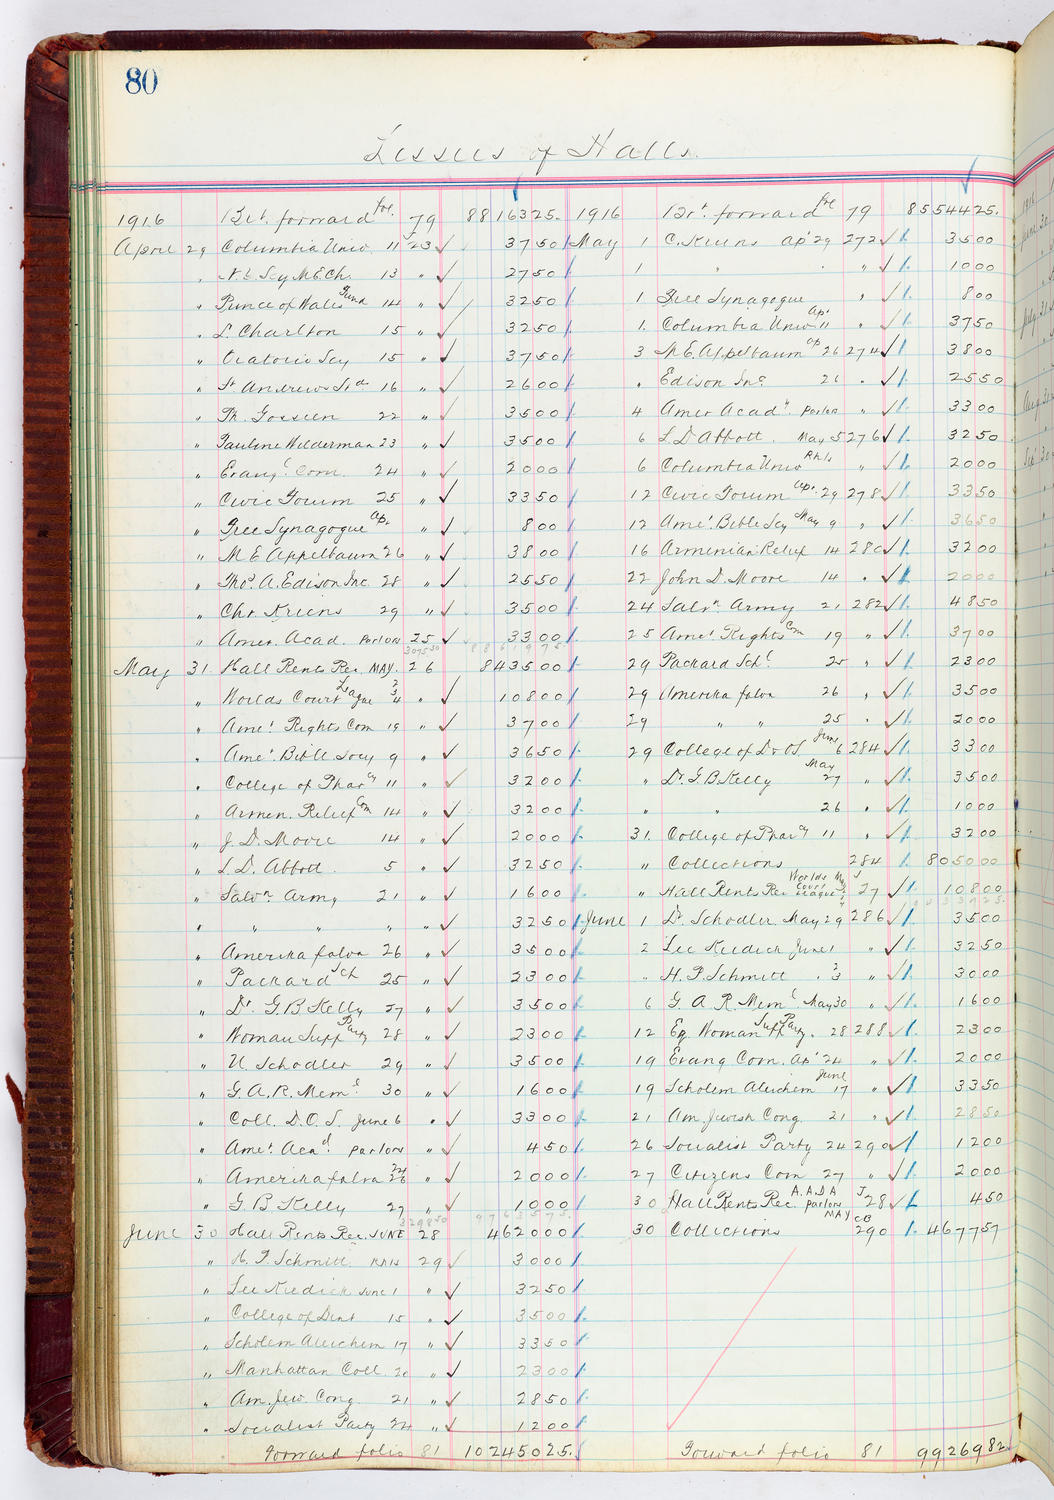 80
Lessees of Halls.
1916 Brt. forward fre. 79 8816325.
April 29 Columbia Univ. 11 23 3750
" N.E. Soy M.E.Ch. 13 " 2750
" Prince of Wales Fund 14 " 3250
" L. Charlton 15 " 3250
" Oratorio Scy 15 " 3750
" St Andrews Sod 16 " 2600
" Th. Gosseen 22 " 3500
" Pauline Wilderman 23 " 3500
" Evangl Com. 24 " 2000
" Civic Forum 25 " 3350
" Free Synagogue Ap. " 800
" M. E. Appelbaum 26 " 3800
" Thos A. Edison Inc. 28 " 2550
" Chr. Kriens 29 " 3500
" Amer. Acad. Parlors 25 3300
307550 8861975.
May 31. Hall Rents Rec. MAY. 26 843500
" Worlds Court League 2 3 4 " 10800
" Amer. Rights Com 19 " 3700
" Amer. Bible Socy 9 " 3650
" College of Pharcy 11 " 3200
" Armen. Relief Com 14 " 3200
" J. D. Moore 14 " 2000
" L. D. Abbott. 5 " 3250
" Salvn Army 21 " 1600
" " " " " 3250
" Amerika falva 26 " 3500
" Packard Sch 25 " 2300
" Dr. G. B Kelly 27 " 3500
" Woman Suff Party 28 " 2300
" U. Schodler 29 " 3500
" G. A. R. Meml 30 " 1600
" Coll. D. O. S. June 6 " 3300
" Amer. Acad. Parlors " 450
" Amerika falva 24 26 " 2000
" G. B Kelly 27 " 1000
329850 9763575.
June 30 Hall Rents Rec. JUNE 28 462000
" H. F. Schmitt. RHLS 29 3000
" Lee Keedick June 1 " 3250
" College of Dent 15 " 3500
" Scholem Aleichem 17 " 3350
" Manhattan Coll. 20 " 2300
" Am. Jew. Cong 21 " 2850
" Socialist Party 24 " 1200
Forward folio 81 10245025.
1916 Brt. forward fre 79 8554425.
May 1 C. Kriens Ap' 29 272 3500
1 " " " 1000
1 Free Synagogue " 800
1. Columbia Univ Ap. 11 " 3750
3 M. E. Appelbaum Ap 26 274 3800
" Edison Inc. 26 " 2550
4 Amer Acady. Parlor " 3300
6 L. D. Abbott. May 5 276 3250
6 Columbia Univ Rhls " 2000
12 Civic Forum Ap. 29 278 3350
12 Amer. Bible Scy May 9 " 3650
16 Armenian Relief 14 280 3200
22 John D. Moore 14 " 2000
24 Salvn. Army 21 282 4850
25 Amer Rights Com 19 " 3700
29 Packard Schl 25 " 2300
29 Amerika falva 26 " 3500
29 " " 25 " 2000
29 College of D. of O.S June 6 284 3300
" Dr. G. B. Kelly May 27 " 3500
" " 26 " 1000
31. College of Phary 11 " 3200
" Collections 284 805000
" Hall Rents Rec Worlds Court League May 2 3 4 J 27 10800
9433925.
June 1 Dr. Schodler May 29 286 3500
2 Lee Keedick June 1 " 3250
" H. F. Schmitt " 2 3 " 3000
6 G. A. R. Meml May 30 " 1600
12 Eq. Woman Suff Party. 28 288 2300
19 Evang Com. Ap' 24 " 2000
19 Scholem Aleichem June 17 " 3350
21 Am. Jewish Cong. 21 " 2850
26 Socialist Party 24 290 1200
27 Citizens Com 27 " 2000
30 Hall Rents Rec. A.A.D.A Parlors MAY J 28 450
30 Collections CB 290 467757
Forward folio 81 9926982.